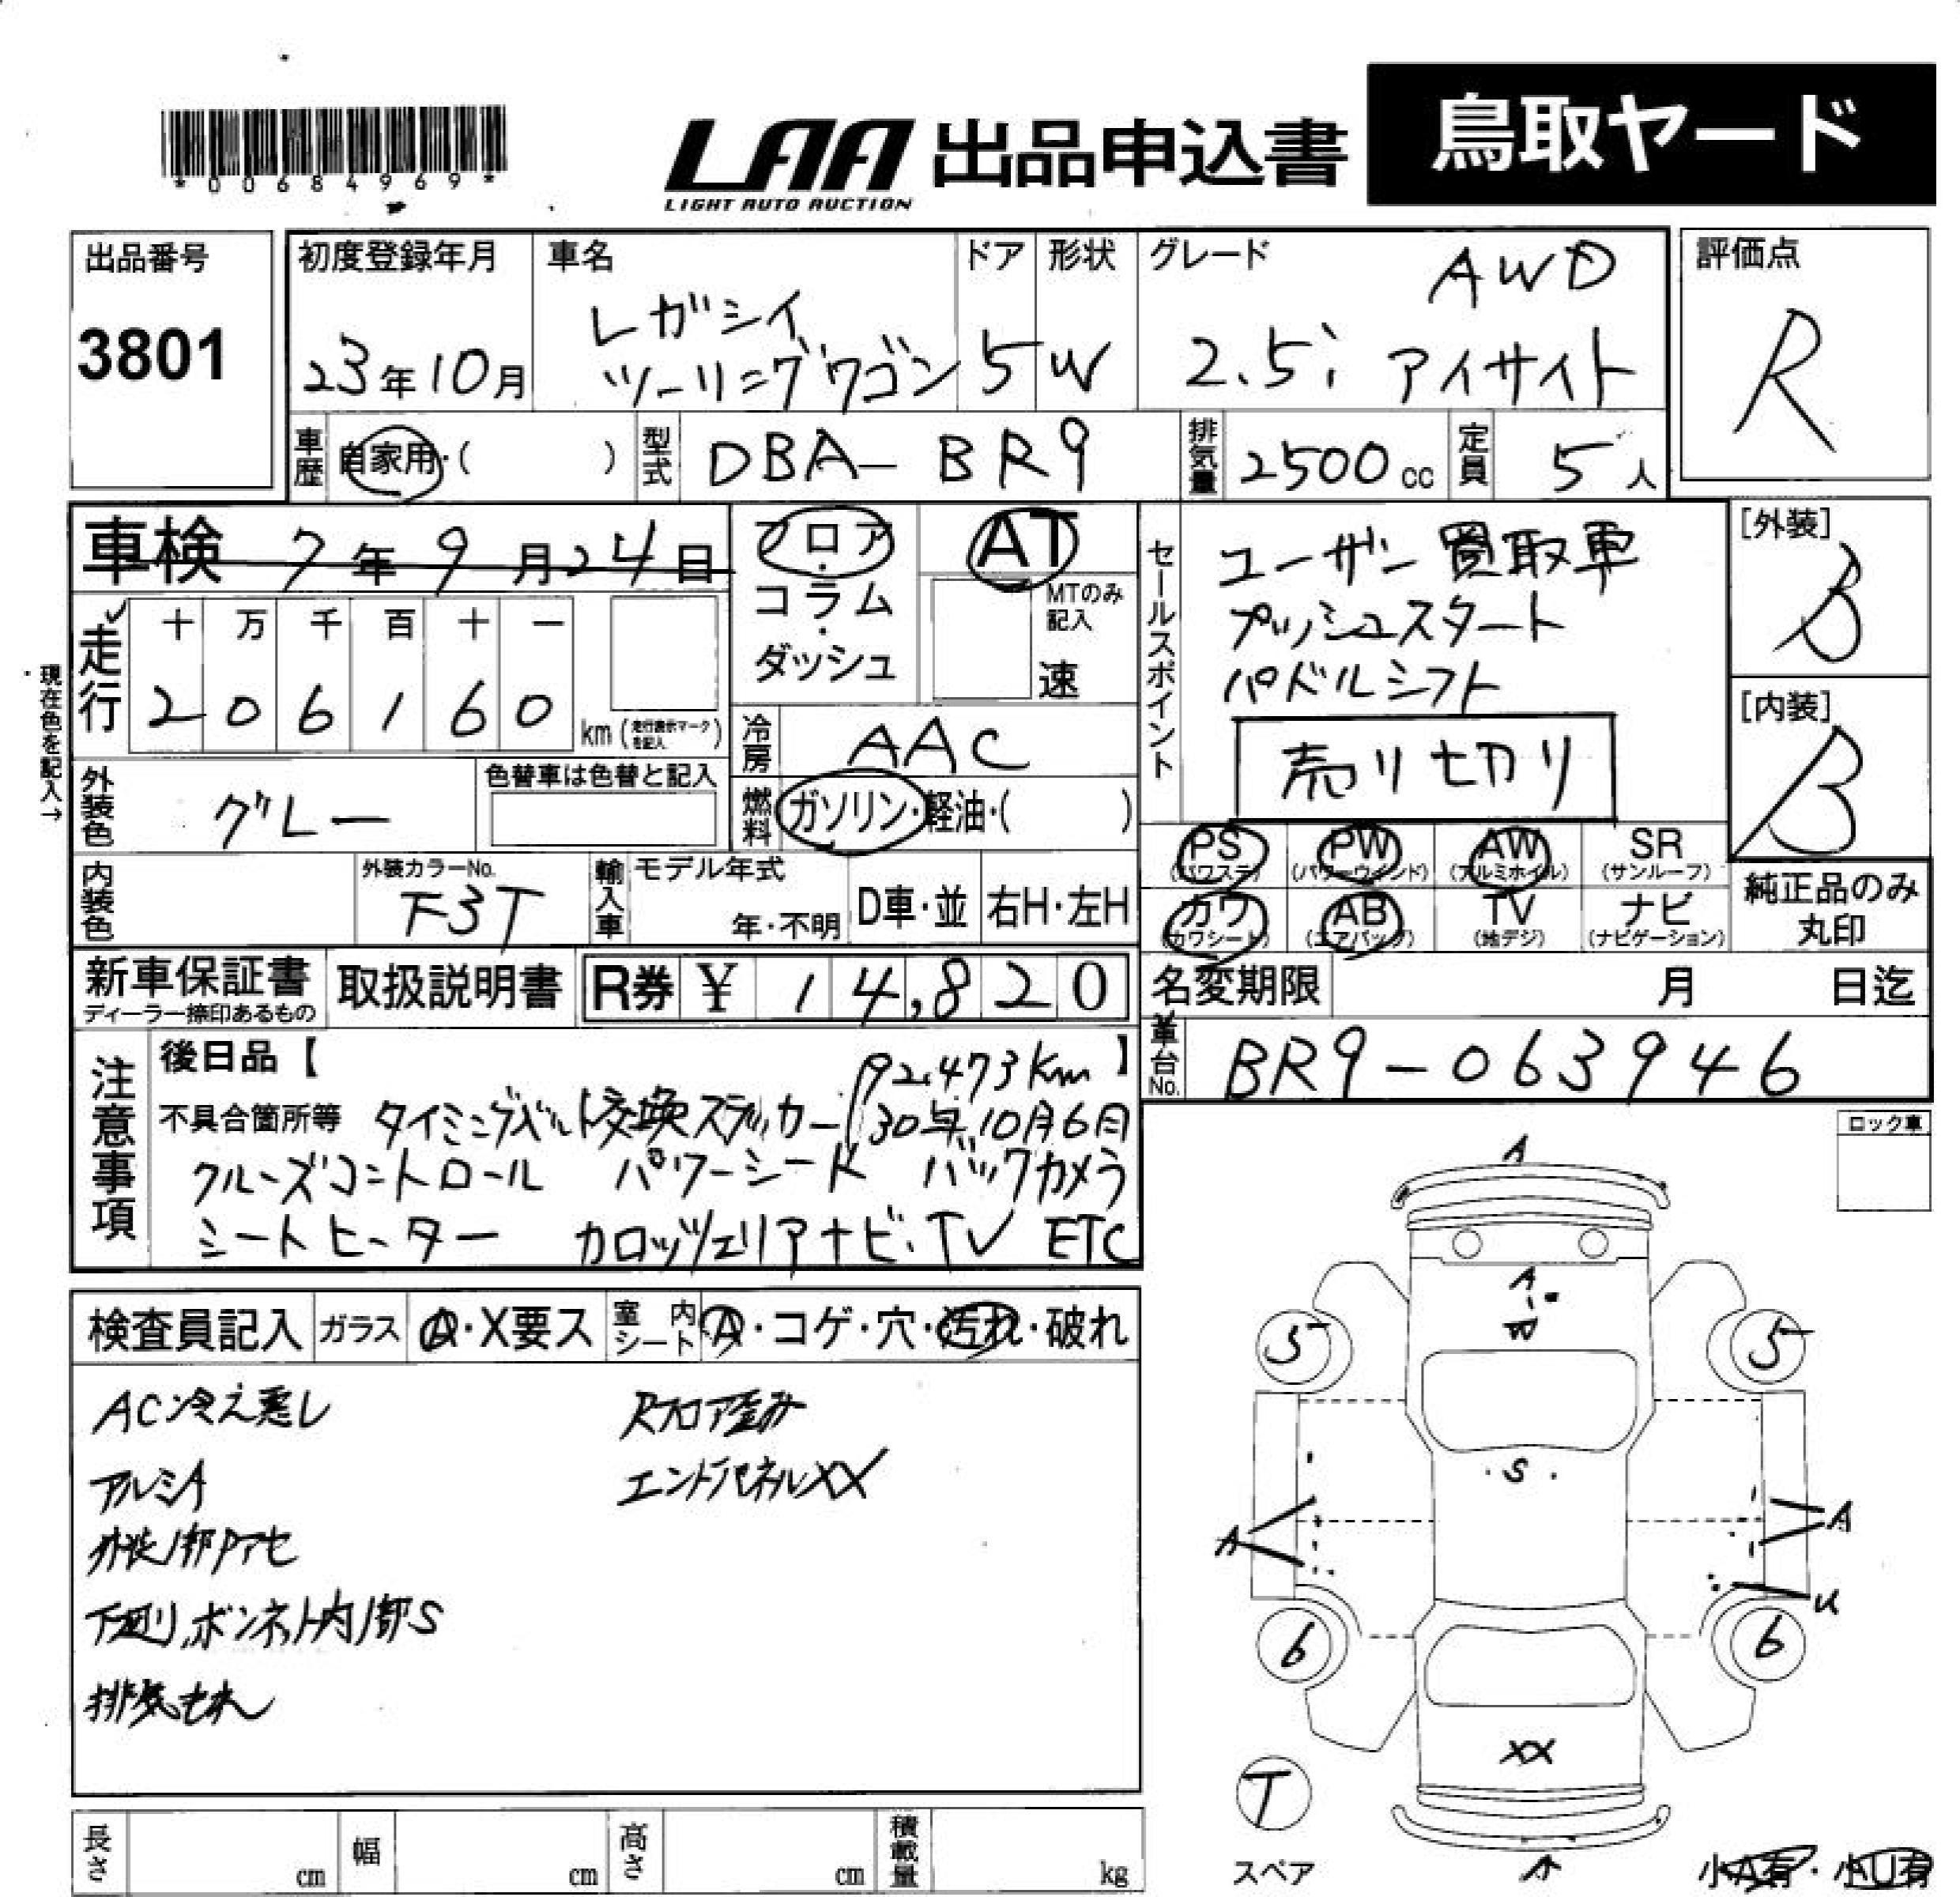 *00684969*
LAA 出品申込書 鳥取ヤード
LIGHT AUTO AUCTION
出品番号 初度登録年月 車名 ドア 形状 グレード 評価点
3801 23年10月 レガシィ ツーリングワゴン 5 W AWD 2.5i アイサイト R
車歴 自家用・( ) 型式 DBA-BR9 排気量 2500cc 定員 5人
車検 7年9月24日 フロア・コラム・ダッシュ AT
MTのみ記入 速
セールスポイント ユーザー買取車
プッシュスタート
パドルシフト
売り切り
[外装] B
[内装] B
走行 十 万 千 百 十 一
2 0 6 1 6 0 km (走行表示マークを記入)
現在色を記入→
冷房 AAC
外装色 グレー 色替車は色替と記入
燃料 ガソリン・軽油・( )
PS (パワステ) PW (パワーウィンド) AW (アルミホイル) SR (サンルーフ)
カワ (カワシート) AB (エアバッグ) TV (地デジ) ナビ (ナビゲーション)
純正品のみ丸印
内装色 外装カラーNo. F3T 輸入車 モデル年式 年・不明 D車・並 右H・左H
新車保証書 ディーラー捺印あるもの 取扱説明書 R券 ¥ 14,820
名変期限 月 日迄
車台No. BR9-063946
注意事項 後日品【 】
92.473km
不具合箇所等 タイミングベルト交換ステッカー 30年10月6日
クルーズコントロール パワーシート バックカメラ
シートヒーター カロッツェリアナビ・TV ETC
ロック車
検査員記入 ガラス A・X要ス 室内シート A・コゲ・穴・汚れ・破れ
AC冷え悪し Rフロア歪み
アルミA エンドパネルXX
外装1部Pアセ
下廻り,ボンネット内1部S
排気もれ
A
A
W
5 5
S
A A
U
6 6
XX
T
スペア
A
小A有・小U有
長さ cm 幅 cm 高さ cm 積載量 kg